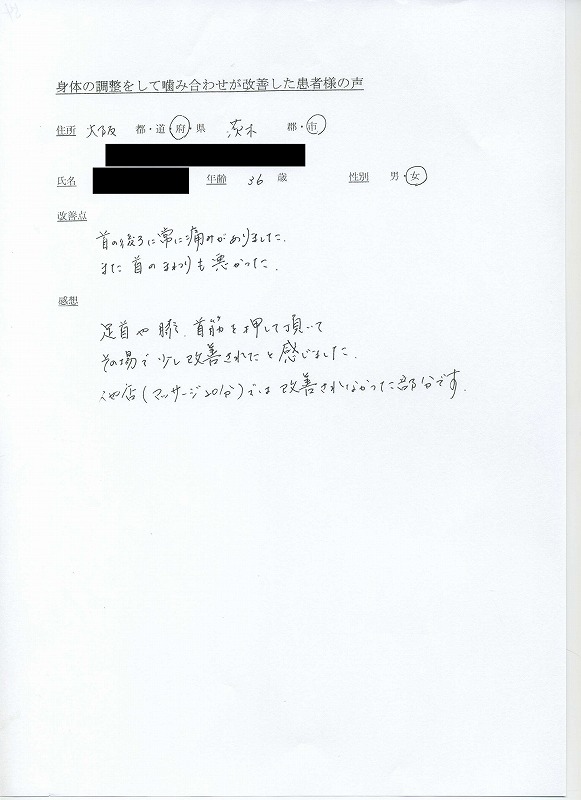 身体の調整をして噛み合わせが改善した患者様の声
住所 大阪 都・道・府・県 茨木 郡・市
氏名 年齢 36 歳 性別 男・女
改善点
首の後ろに常に痛みがありました.
また首のまわりも悪かった.
感想
足首や膝、首筋を押して頂いて
その場で少し改善されたと感じました.
他店(マッサージ20分)では改善されなかった部分です.